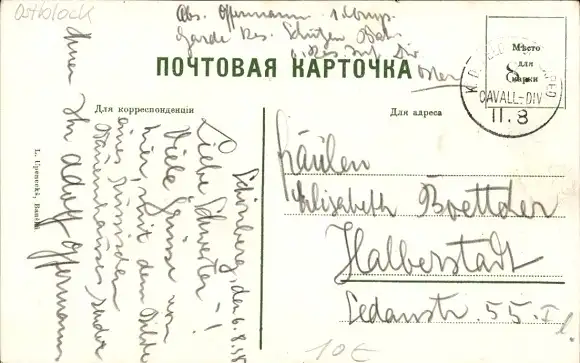 Ostblock
Abs. Offermann 1. Komp.
Garde Res. Schützen Batl.
Osten
ПОЧТОВАЯ КАРТОЧКА
Мѣсто
для
марки
CAVALL.-DIV
11.8
Для корреспонденціи
Для адреса
Schönberg, den 6.8.15
Liebe Schwester!
Viele Grüsse von
hier, mit dem Bilde
eines russischen
Bauernhauses sendet
Ihnen
Ihr Adolf Offermann
Fräulein
Elisabeth Boettcher
Halberstadt
Sedanstr. 55. I
10€